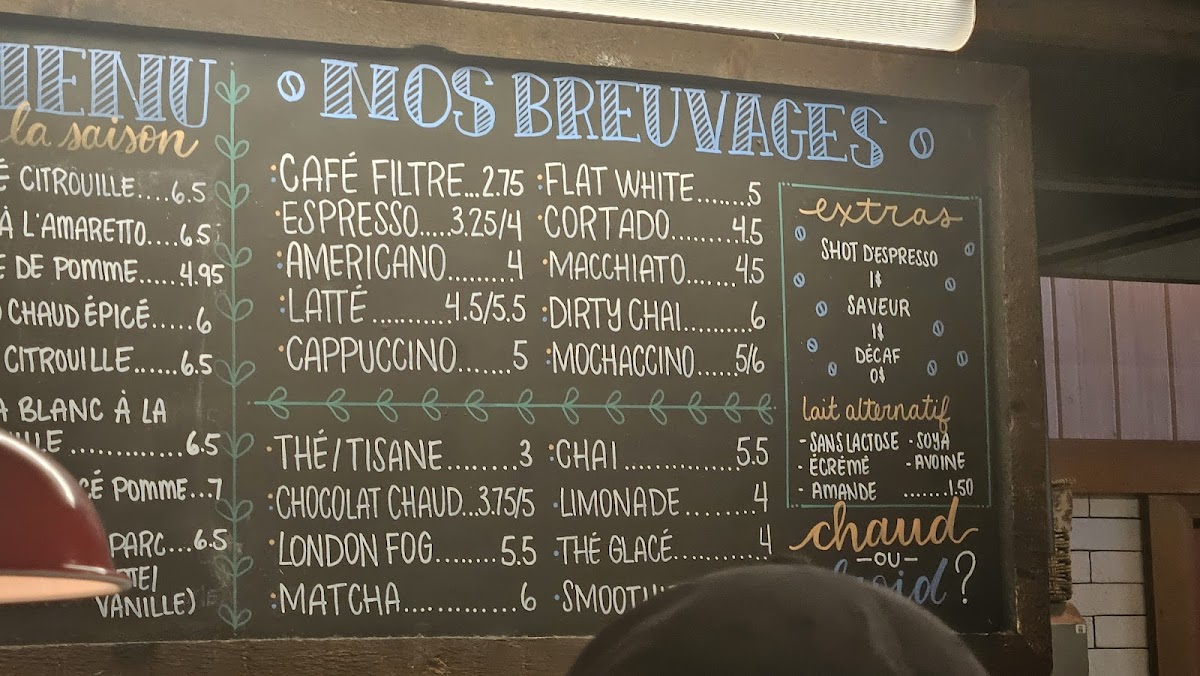 MENU
la saison
CITROUILLE....6.5
À L'AMARETTO....6.5
DE POMME.....4.95
CHAUD ÉPICÉ.....6
CITROUILLE......6.5
BLANC À LA
.............6.5
POMME...7
PARC...6.5
VANILLE)
NOS BREUVAGES
CAFÉ FILTRE...2.75
ESPRESSO.....3.25/4
AMERICANO.......4
LATTÉ ..........4.5/5.5
CAPPUCCINO.....5
FLAT WHITE.......5
CORTADO........4.5
MACCHIATO......4.5
DIRTY CHAI........6
MOCHACCINO.....5/6
THÉ/TISANE.......3
CHOCOLAT CHAUD...3.75/5
LONDON FOG.......5.5
MATCHA............6
CHAI.............5.5
LIMONADE........4
THÉ GLACÉ..........4
extras
SHOT D'ESPRESSO
1$
SAVEUR
1$
DÉCAF
0$
lait alternatif
- SANS LACTOSE - SOYA
- ÉCRÉMÉ - AVOINE
- AMANDE .......1.50
chaud
-OU-
?